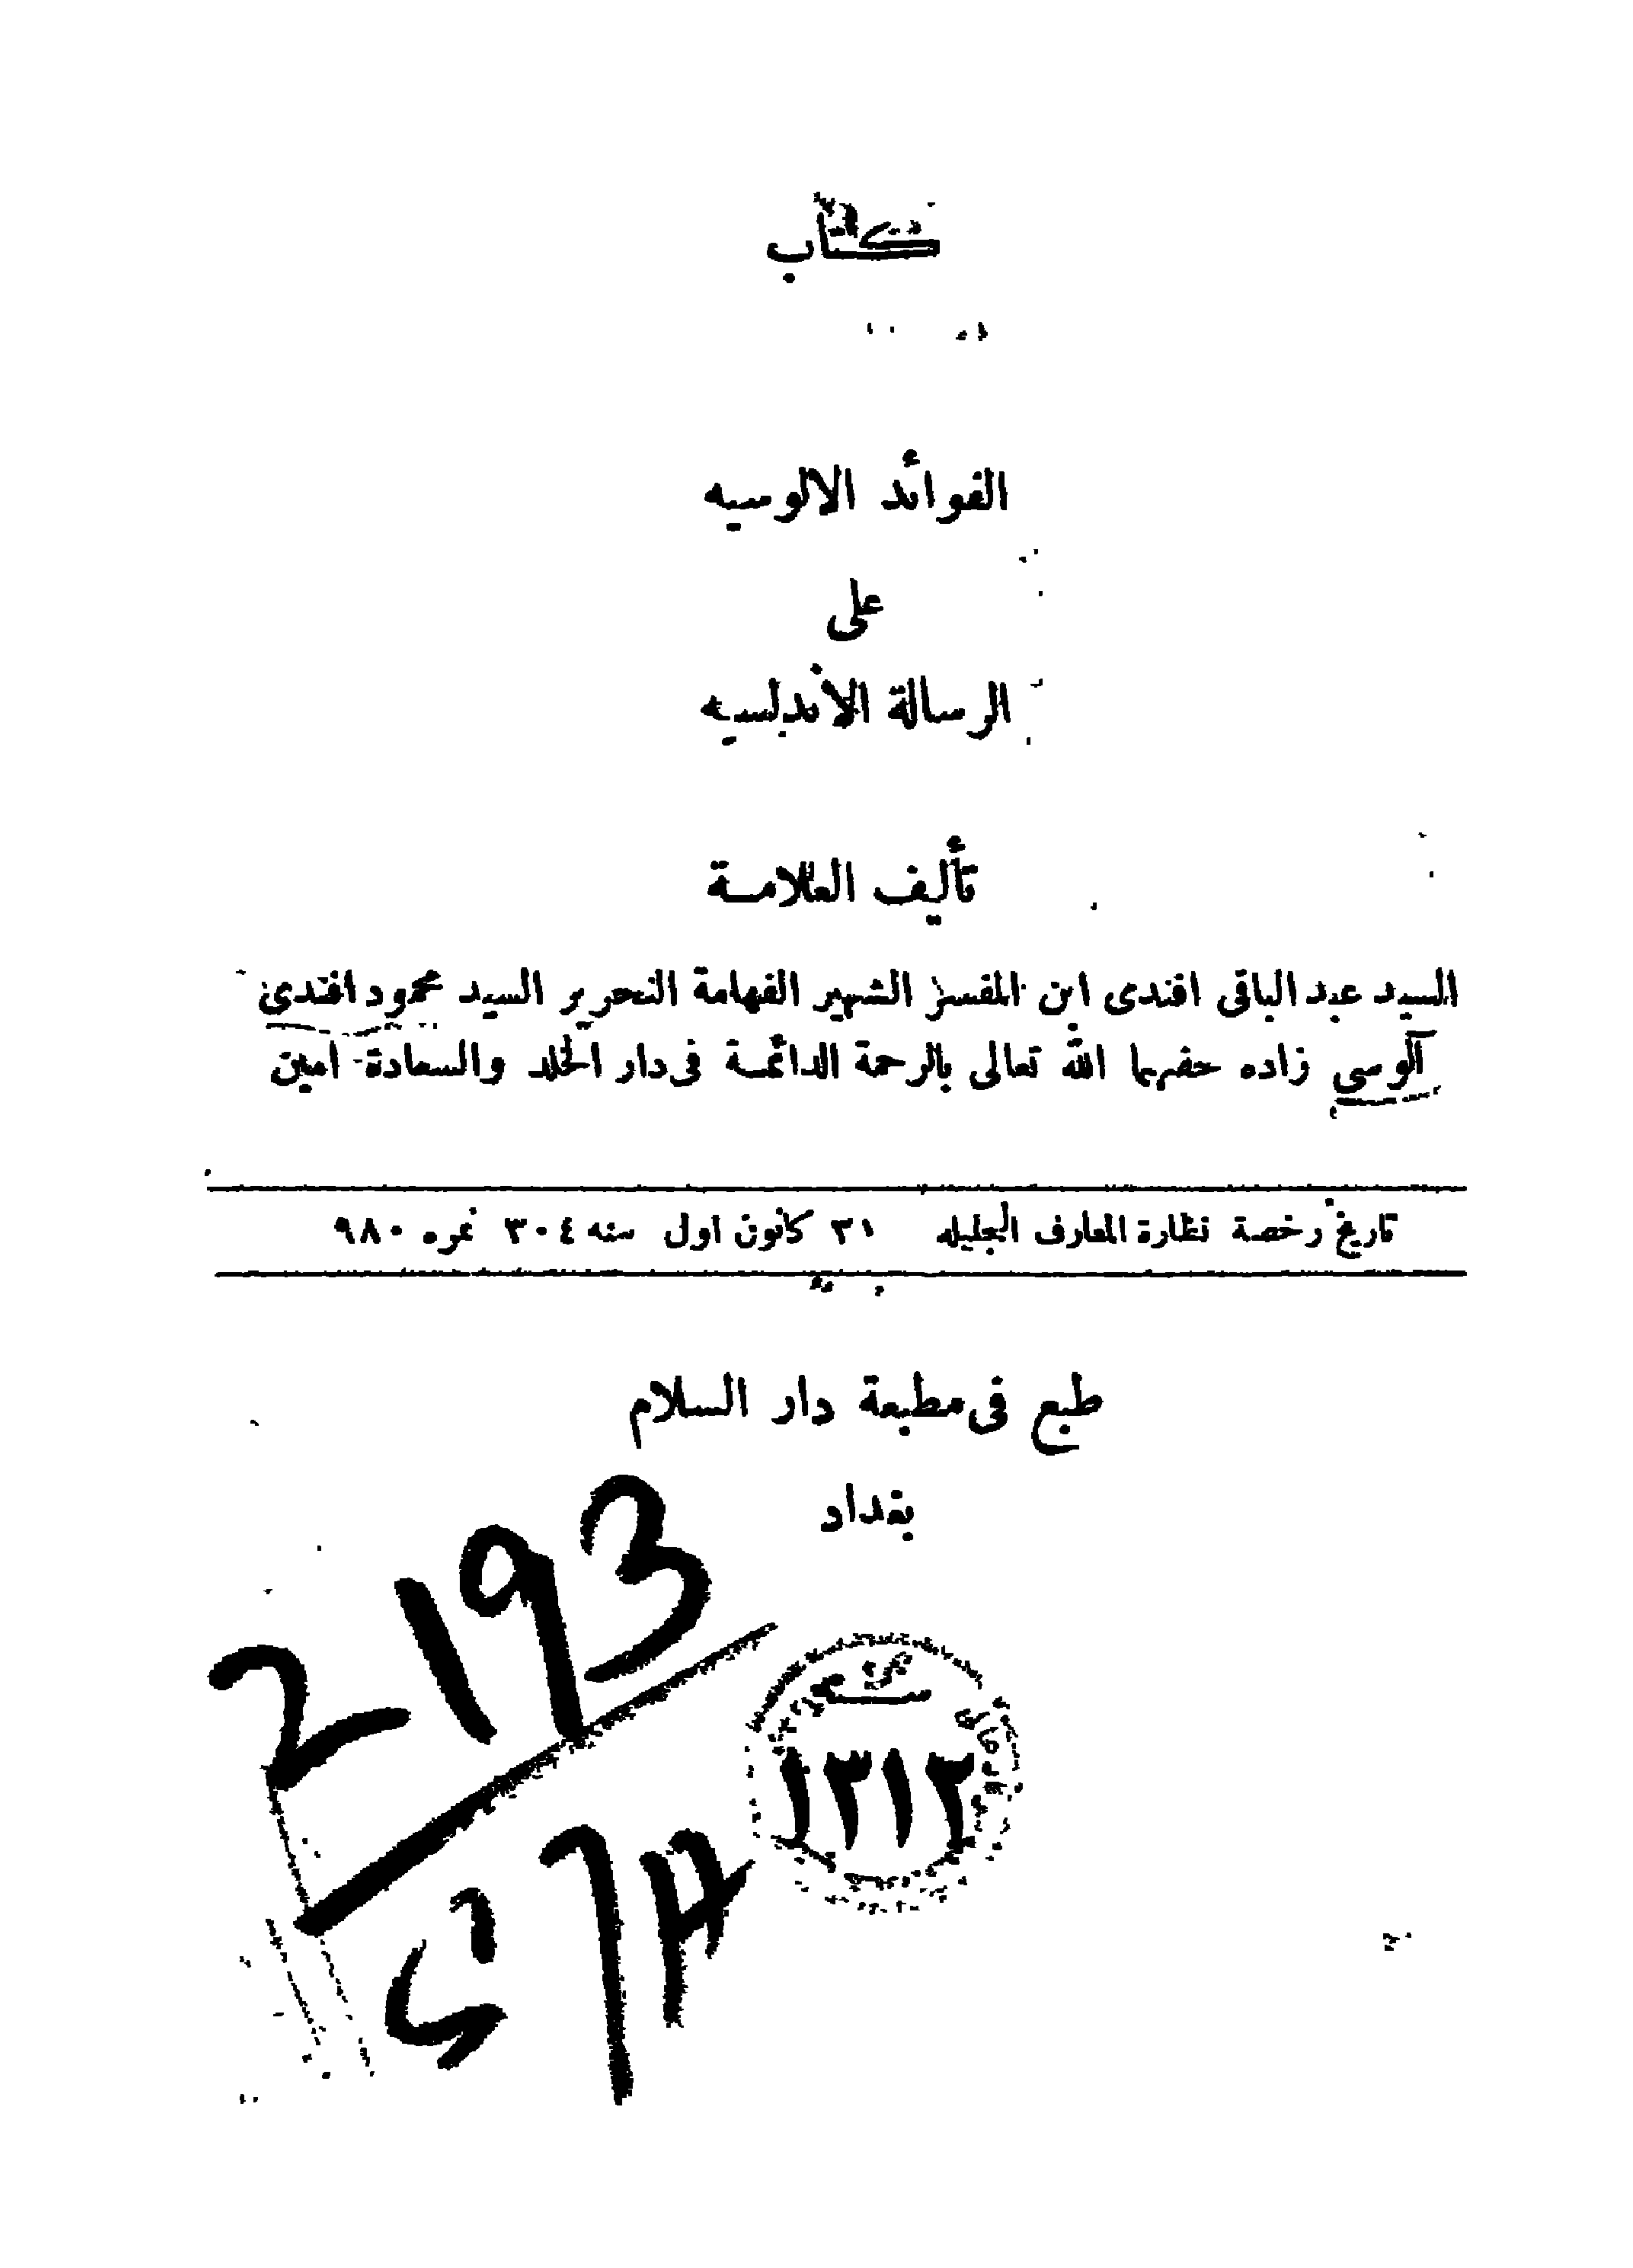 كتاب
الفوائد الالوسيه
على
الرسالة الأندلسيه
تأليف العلامة
السيد عبد الباقى افندى ابن المفسر الشهير الفهامة النحرير السيد محمود افندى
آلوسى زاده حفهما الله تعالى بالرحمة الدائمة فى دار الخلد والسعادة امين
تاريخ رخصة نظارة المعارف الجليله ٣١ كانون اول سنه ٣٠٤ نمره ٩٨٠
طبع فى مطبعة دار السلام
بغداد
2193
١٣١٢